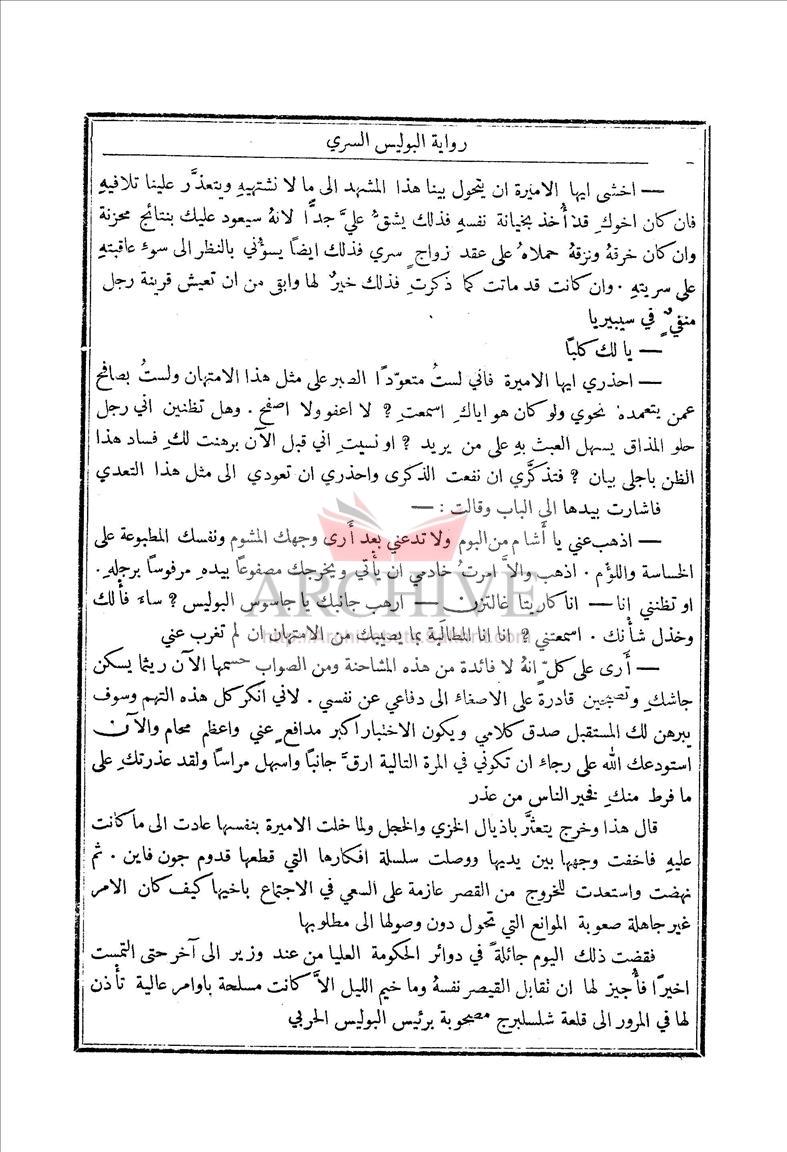 رواية البوليس السري
— اخشى ايها الاميرة ان يتحول بينا هذا المشهد الى ما لا نشتهيهِ ويتعذَّر علينا تلافيهِ
فان كان اخوكِ قد أُخذ بخيانة نفسهِ فذلك يشقُّ عليَّ جدًّا لانهُ سيعود عليك بنتائج محزنة
وان كان خرقهُ ونزقهُ حملاهُ على عقد زواجٍ سري فذلك ايضاً يسؤني بالنظر الى سوء عاقبتهِ
على سريتهِ . وان كانت قد ماتت كما ذكرتِ فذلك خيرٌ لها وابقى من ان تعيش قرينة رجل
منفيٍّ في سيبيريا
— يا لك كلباً
— احذري ايها الاميرة فاني لستُ متعوّدًا الصبر على مثل هذا الامتهان ولستُ بصافح
عمن يتعمده نحوي ولو كان هو اياكِ اسمعتِ ? لا اعفو ولا اصفح . وهل تظنين اني رجل
حلو المذاق يسهل العبث بهِ على من يريد ? او نسيتِ اني قبل الآن برهنت لكِ فساد هذا
الظن باجلى بيان ? فتذكَّري ان نفعت الذكرى واحذري ان تعودي الى مثل هذا التعدي
فاشارت بيدها الى الباب وقالت : —
— اذهب عني يا أشام من البوم ولا تدعني بعد أرى وجهك المشوم ونفسك المطبوعة على
الخساسة واللؤم . اذهب والاَّ امرتُ خادمي ان يأتي ويخرجك مصفوعاً بيدهِ مرفوسا برجلهِ .
او تظنني انا — انا كاريتا غالتزن — ارهب جانبك يا جاسوس البوليس ? ساء فألك
وخذل شأنك . اسمعتني ? انا انا المطالبة بما يصيبك من الامتهان ان لم تغرب عني
— أرى على كلّ انهُ لا فائدة من هذه المشاحنة ومن الصواب حسمها الآن ريثما يسكن
جاشكِ وتصبحين قادرة على الاصغاء الى دفاعي عن نفسي . لاني انكر كل هذه التهم وسوف
يبرهن لك المستقبل صدق كلامي ويكون الاختبار اكبر مدافع عني واعظم محام والآن
استودعك الله على رجاء ان تكوني في المرة التالية ارقَّ جانباً واسهل مراساً ولقد عذرتكِ على
ما فرط منكِ فخير الناس من عذر
قال هذا وخرج يتعثَّر باذيال الخزي والخجل ولما خلت الاميرة بنفسها عادت الى ما كانت
عليهِ فاخفت وجهها بين يديها ووصلت سلسلة افكارها التي قطعها قدوم جون فاين . ثم
نهضت واستعدت للخروج من القصر عازمة على السعي في الاجتماع باخيها كيف كان الامر
غير جاهلة صعوبة الموانع التي تحول دون وصولها الى مطلوبها
فقضت ذلك اليوم جائلةً في دوائر الحكومة العليا من عند وزير الى آخر حتى التمست
اخيرًا فأُجيز لها ان تقابل القيصر نفسهُ وما خيم الليل الاَّ كانت مسلحة باوامر عالية تأذن
لها في المرور الى قلعة شلسلبرج مصحوبة برئيس البوليس الحربي
ARCHIVE